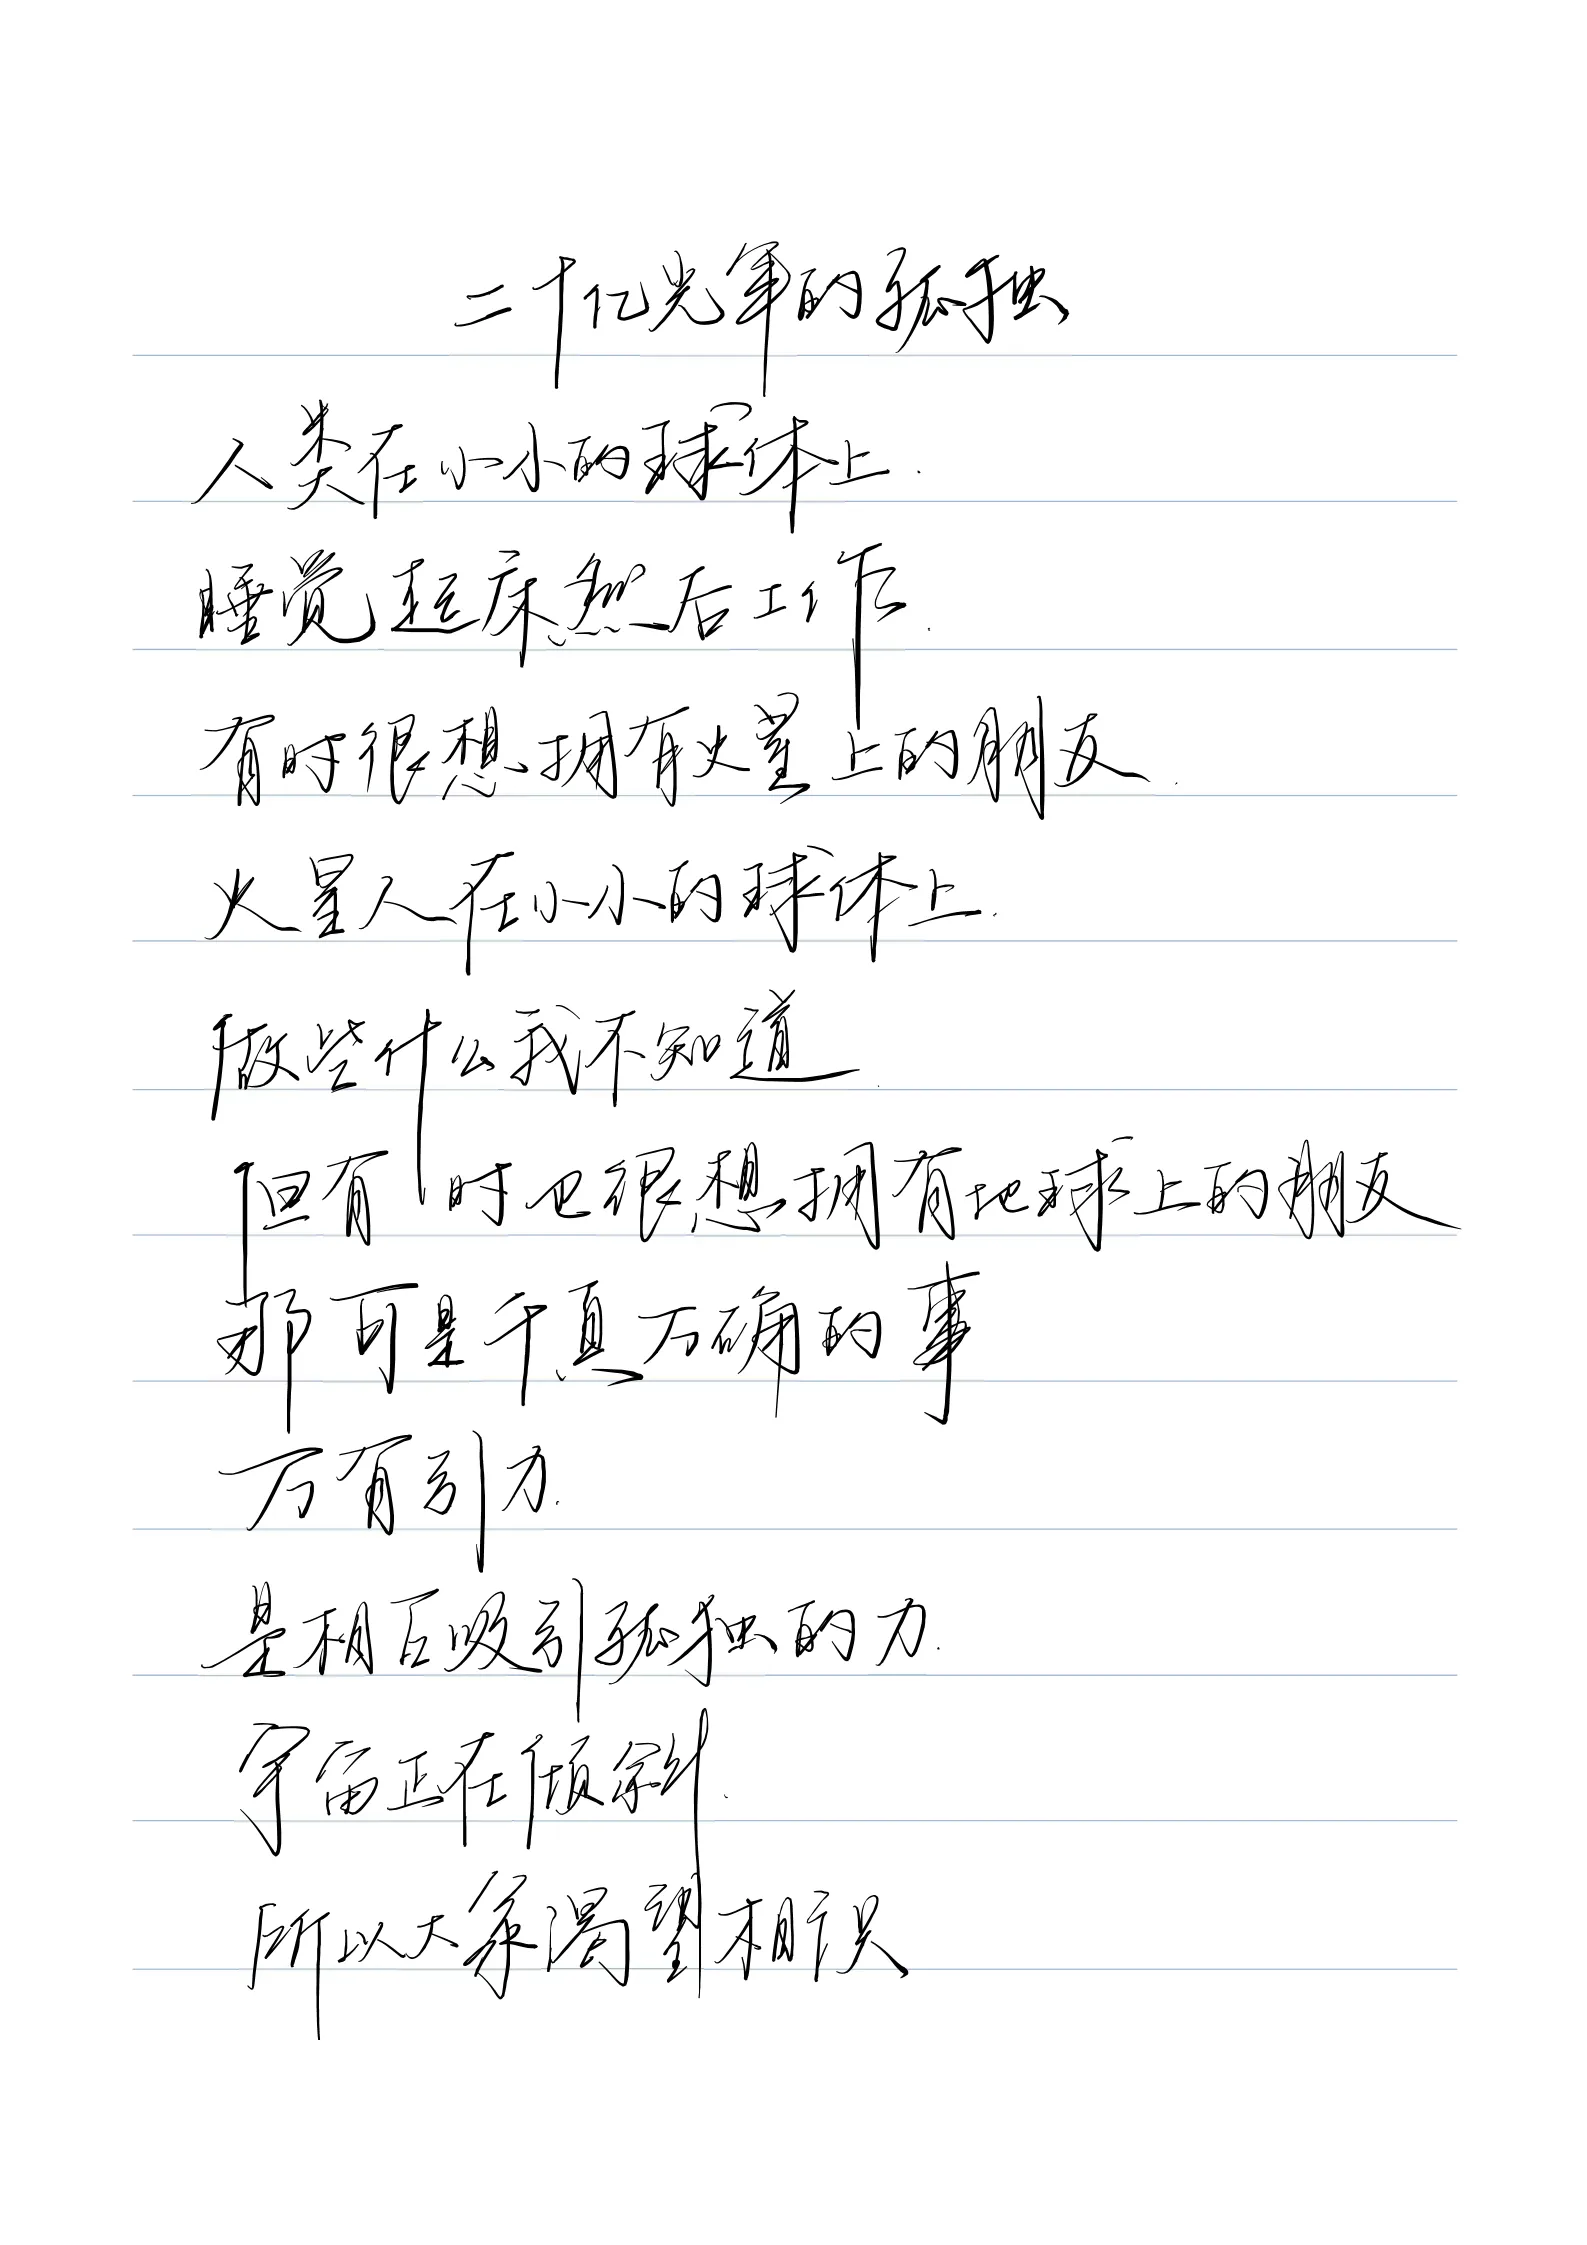 二十亿光年的孤独
人类在小小的球体上.
睡觉起床然后工作.
有时很想拥有火星上的朋友.
火星人在小小的球体上.
做些什么我不知道.
但有时也很想拥有地球上的朋友
那可是千真万确的事
万有引力.
是相互吸引孤独的力.
宇宙正在倾斜.
所以大家渴望相识